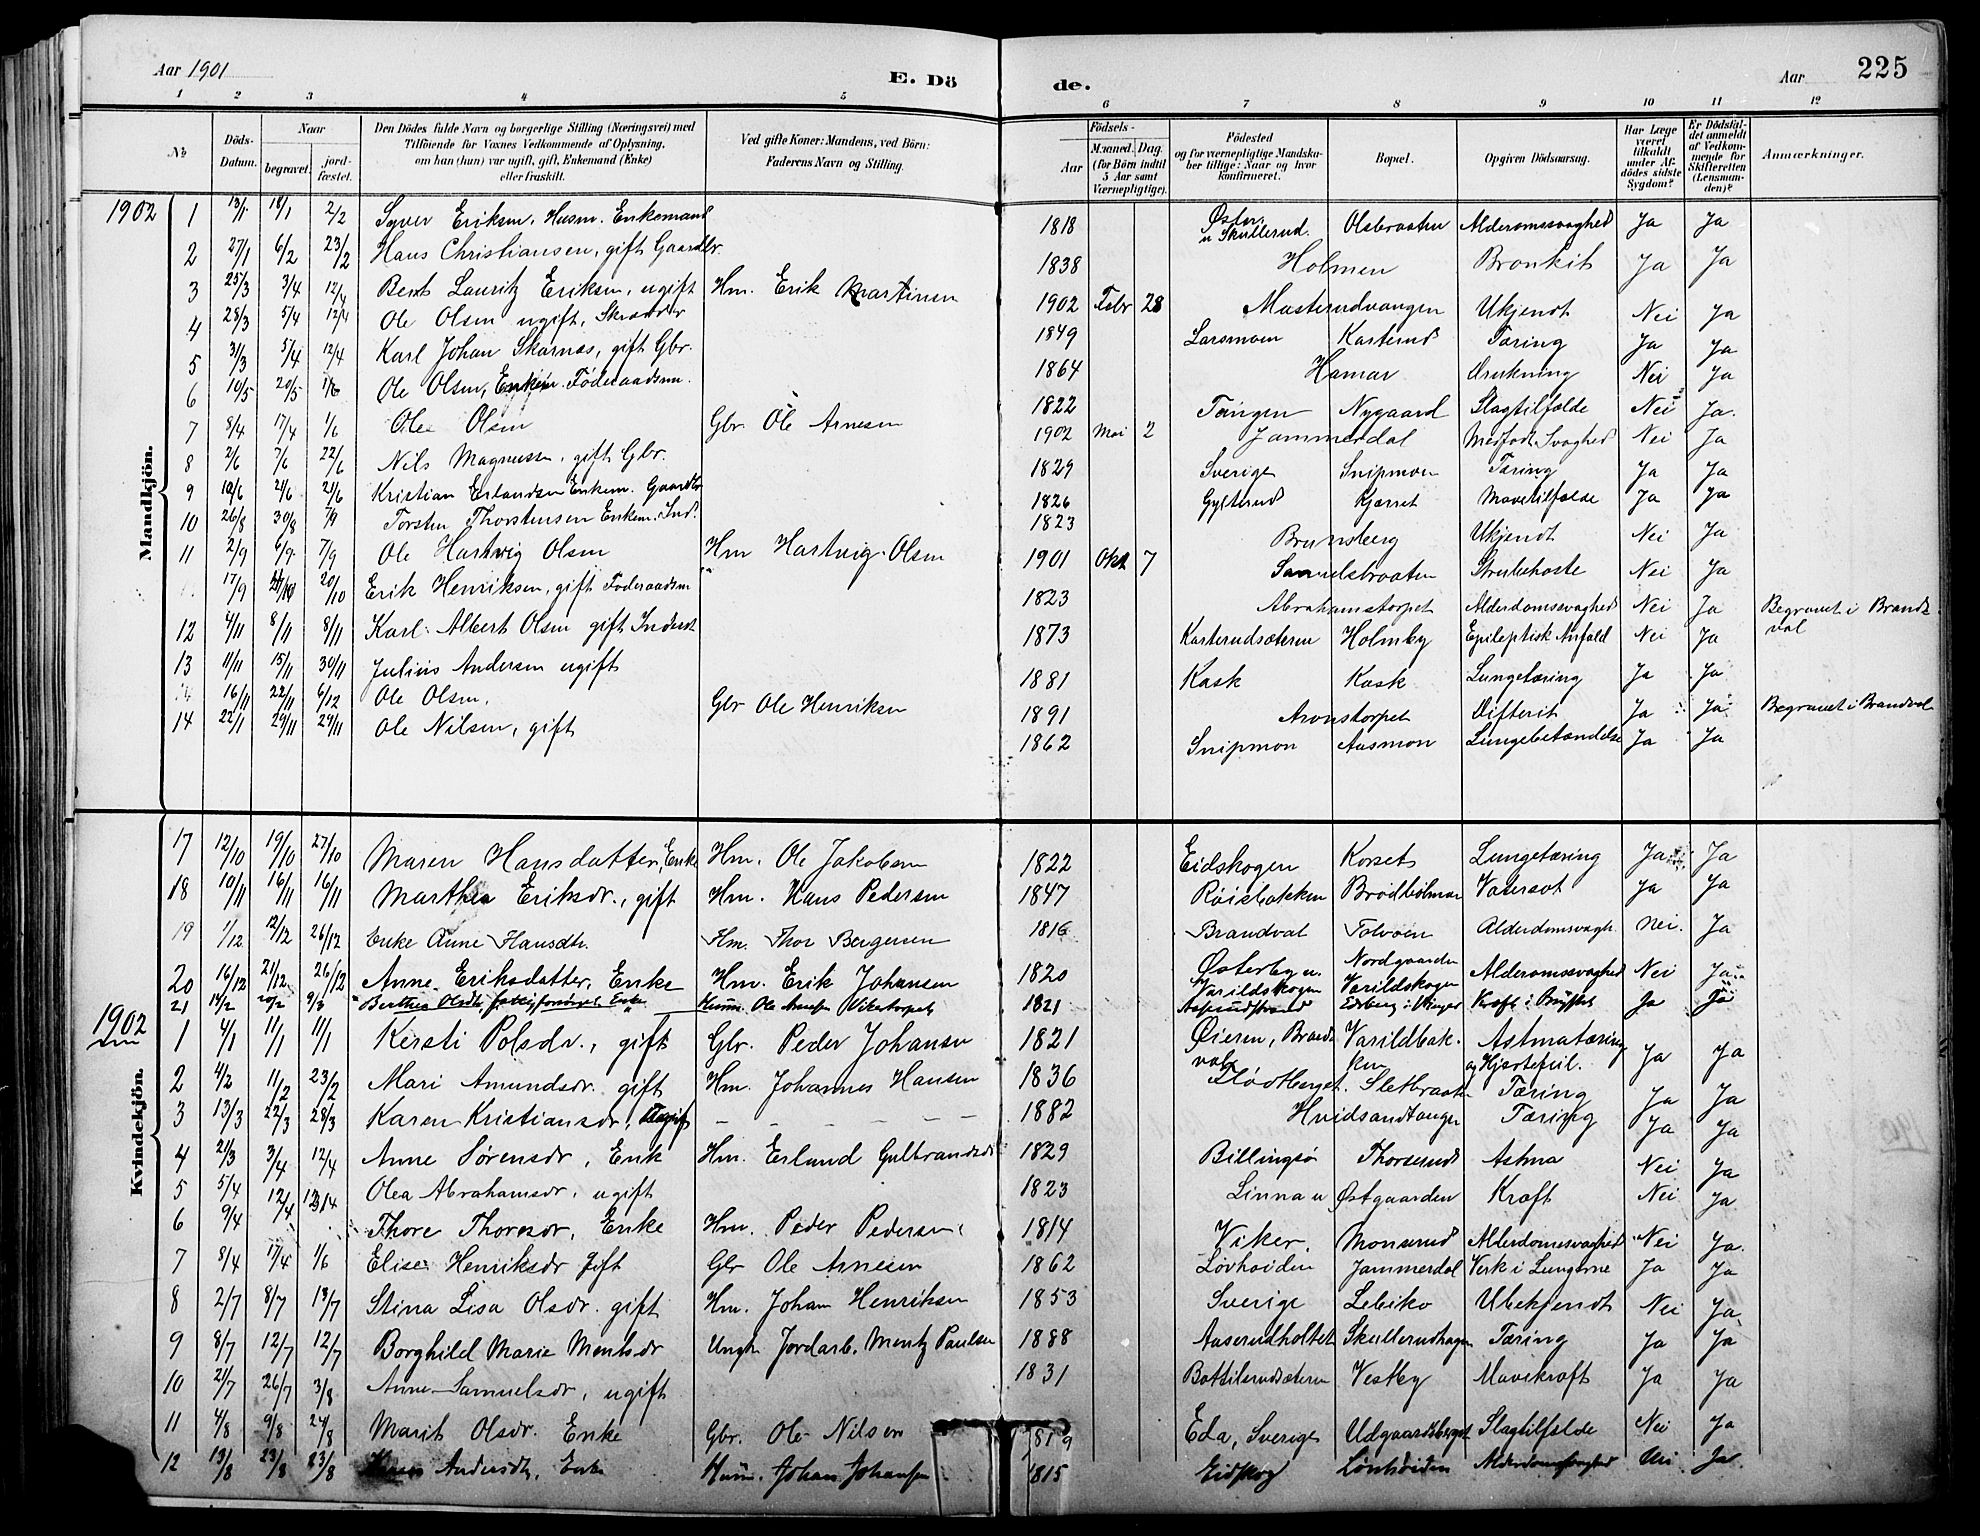 Aar 1901
E. Dö
de.
Aar
225
1 2 3 4 5 6 7 8 9 10 11 12
No
Döds-Datum.
Naar
begravet.
jordfæstet.
Den Dödes fulde Navn og borgerlige Stilling (Næringsvei) med
Tilföiende for Voxnes Vedkommende af Oplysning,
om han (hun) var ugift, gift, Enkemand (Enke)
eller fraskilt.
Ved gifte Koner: Mandens, ved Börn:
Faderens Navn og Stilling.
Födsels-
Aar
Maaned. Dag.
(for Börn indtil
5 Aar samt
Værnepligtige).
Födested
og for værnepligtige Mandska-
ber tillige: Naar og hvor
konfirmeret.
Bopæl.
Opgiven Dödsaarsag.
Har Læge
været
tilkaldt
under Af-
dödes sidste
Sygdom?
Er Dödsfal-
det anmeldt
af Vedkom-
mende for
Skifteretten
(Lensman-
den)?
Anmærkninger.
Mandkjön.
1902 1 13/1 18/1 2/2 Syver Eriksen, Husm. Enkemand 1818 Øster u Skullerud. Olsbraaten Alderomssvaghed Ja Ja
2 27/1 6/2 23/2 Hans Christiansen, gift Gaardbr. 1838 Holmen Bronkit Ja Ja
3 25/3 3/4 12/4 Bent Lauritz Eriksen, ugift Hm. Erik Martinsen 1902 Febr 28 Masterudvangen Ukjendt Nei Ja
4 28/3 5/4 12/4 Ole Olsen ugift, Skrædder 1849 Larsmoen Kasterud Tæring Ja Ja
5 31/3 5/4 12/4 Karl Johan Skarnæs, gift Gbr. 1864 Hamar Drukning Nei Ja
6 10/5 20/5 1/6 Ole Olsen, Enkem. Föderaadsm. 1822 Tangen Nygaard Slagtilfælde Nei Ja.
7 8/4 17/4 1/6 Ole Olsen Gbr Ole Arnesen 1902 Mai 2 Jammerdal Medfödt Svaghed Nei Ja
8 2/6 7/6 22/6 Nils Magnussen, gift Gbr. 1829 Sverige Snipmoen Tæring Ja Ja
9 10/6 21/6 21/6 Kristian Erlandsen Enkem. Gaardbr 1826 Gylterud Kjerret Mavetilfælde Ja Ja
10 26/8 30/8 7/9 Torsten Thorstensen Enkem. Ind. 1823 Brunsberg Ukjendt Nei Ja
11 2/9 6/9 7/9 Ole Hartvig Olsen Hm Hartvig Olsen 1901 Okt 7 Samuelsbraaten Strubehoste Nei Ja
17/9 20/10 Erik Henriksen, gift Foderaadsm 1823 Abrahamstorpet Alderdomssvaghed Nei Ja Begravet i Brand-
val
12 4/11 8/11 8/11 Karl Albert Olsen gift Inderst 1873 Kasterudsæteren Holmby Epileptisk Anfald Nei Ja
13 11/11 15/11 30/11 Julius Andersen ugift 1881 Kask Kask Lungetæring Ja Ja
16/11 22/11 6/12 Ole Olsen. Gbr Ole Henriksen 1891 Aronstorpet Difterit Ja Ja Begravet i Brandval
14 22/1 29/11 29/11 Ole Nilsen, gift 1862 Snipmon Aasmon Lungebetændelse Ja Ja
Kvindekjön.
17 12/10 19/10 27/10 Maren Hansdatter, Enke Hm. Ole Jakobsen 1822 Eidskogen Korset Lungetæring Ja Ja
18 10/11 16/11 16/11 Marthea Eriksdr., gift Hm. Hans Pedersen 1847 Röisbakken Brödbölmoen Vatersot Ja Ja
19 1/12 12/12 26/12 Enke Anne Hansdtr. Hm. Thor Bergersen 1816 Brandval Tolvöen Alderdomssvagh. Nei. Ja
20 16/12 21/12 26/12 Anne Eriksdatter, Enke Hm. Erik Johansen 1820 Østerby u. Varildskogen Nordgaarden Varildskogen Alderomssvaghed Nei Ja
21 14/2 20/2 9/3 Berthea Olsdtr Enke Husm. Ole Hansen Vikstorpet 1821 Edsberg i Kræft i Brystet Ja Ja
1902
1 4/1 11/1 11/1 Kersti Polsdr., gift Gbr. Peder Johansen 1821 Øieren, Brand-
val Varildbak-
ken Astmatæring
og Hjertefeil. Ja Ja
2 4/2 11/2 23/2 Mari Amundsdr. gift Hm. Johannes Hansen 1836 Slotberget. Sletbraaten Tæring Ja Ja
3 13/3 22/3 28/3 Karen Kristiansdr, Ugift – – – – – 1882 Hvidsandtangen Tæring Ja Ja
4 21/3 3/4 12/4 Anne Sörensdr, Enk Hm. Erland Gulbrandsen 1829 Billingsö Thorserud Astma Nei Ja
5 5/4 12/4 13/4 Olea Abrahamsdr, ugift 1823 Linna u Østgaarden Kræft Nei Ja
6 9/4 Thore Thoresdr, Enke Hm. Peder Pedersen 1814 Viker. Monserud Alderdomssvaghed Nei Ja.
7 8/4 17/4 1/6 Elise Henriksdr gift Gbr Ole Arnesen 1862 Lövhöiden Jammerdal Verk i Lungerne Ja Ja
8 2/7 8/7 13/7 Stina Lisa Olsdr. gift Hm. Johan Henriksen 1853 Sverige Lebiko Ubekjendt Nei Ja.
9 8/7 12/7 12/7 Borghild Marie Mentsdr Ungk Jordarb. Mentz Paulsen 1888 Aaserudholtet Skullerudhagen Tæring Ja Ja
10 21/7 26/7 3/8 Anne Samuelsdr, ugift 1831 Bottilerudsæteren Vestby Mavekræft Ja Ja
11 4/8 9/8 24/8 Marit Olsdr. Enke Gbr. Ole Nilsen 1819 Eda, Sverige Udgaardsberget Slagtilfælde Nei Ja
12 13/8 23/8 23/8 Andersdtr, Enke Husm. Johan Johansen 1815 Eidskog Lönhöiden Alderdomssvaghed Nei Ja.